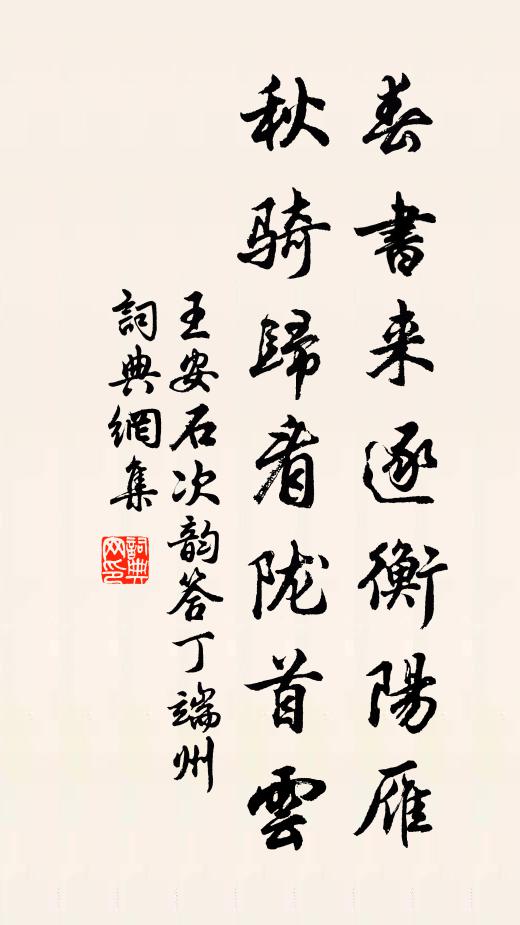 春書来逐衡陽雁
秋骑歸看陇首雲
王安石次韵答丁端州
詞典網集
詞典网印